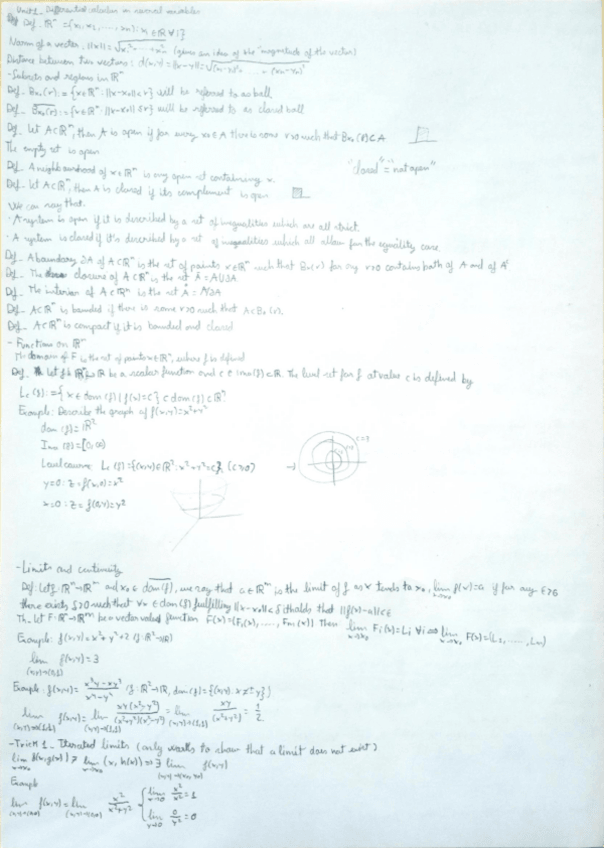 Unit 1_ Differential calculus in several variables
Def_ ℝⁿ = {x₁, x₂, ..., xn): xᵢ ∈ ℝ ∀i}
Norm of a vector: ||x|| = √x₁²+...+xn² (gives an idea of the "magnitude of the vector)
Distance between two vectors: d(x,y)=||x-y||=√(x₁-y₁)²+ ... + (xn-yn)²
- Subsets and regions in ℝⁿ
Def_ Bx₀(r):={x∈ℝⁿ: ||x-x₀||<r} will be referred to as ball
Def_ Bx₀(r):={x∈ℝⁿ: ||x-x₀||≤r} will be referred to as closed ball
Def_ Let A⊂ℝⁿ, then A is open if for every x₀∈A there is some r>0 such that Bx₀(r)⊂A
The empty set is open
"closed" ≠ "not open"
Def_ A neighbourhood of x∈ℝⁿ is any open set containing x.
Def_ Let A⊂ℝⁿ, then A is closed if its complement is open
We can say that:
· A system is open if it is described by a set of inequalities which are all strict.
· A system is closed if it's described by a set of inequalities which all allow for the equality case.
Def_ A boundary ∂A of A⊂ℝⁿ is the set of points x∈ℝⁿ such that Bx(r) for any r>0 contains both of A and of Aᶜ
Def_ The closure of A⊂ℝⁿ is the set Ā = A∪∂A
Def_ The interior of A⊂ℝⁿ is the set Å = A\∂A
Def_ A⊂ℝⁿ is bounded if there is some r>0 such that A⊂B₀(r).
Def_ A⊂ℝⁿ is compact if it is bounded and closed
- Functions on ℝⁿ
The domain of F is the set of points x∈ℝⁿ, where f is defined
Def_ Let f: ℝⁿ→ℝ be a scalar function and c∈ima(f)⊂ℝ. The level set for f at value c is defined by
Lc(f):={x∈dom(f) | f(x)=c}⊂dom(f)⊂ℝⁿ
Example: Describe the graph of f(x,y)=x²+y²
dom(f)=ℝ²
Ima(f)=[0,∞)
Level curve Lc(f)={(x,y)∈ℝ²: x²+y²=c}, (c≥0) →
y=0: z=f(x,0)=x²
x=0: z=f(0,y)=y²
- Limits and continuity
Def: Let f: ℝⁿ→ℝᵐ and x₀∈dom(f), we say that a∈ℝᵐ is the limit of f as x tends to x₀, lim x→x₀ f(x)=a if for any ε>0
there exists δ>0 such that ∀x∈dom(f) fulfilling ||x-x₀||<δ it holds that ||f(x)-a||<ε
Th_ Let F: ℝⁿ→ℝᵐ be a vector valued function F(x)=(F₁(x), ....., Fm(x)) Then lim x→x₀ Fi(x)=Li ∀i ⇔ lim x→x₀ F(x)=(L₁, ....., Lm)
Example: f(x,y)=x²+y²+2 (f: ℝ²→ℝ)
lim f(x,y)=3
Example: f(x,y)= x³y-xy³ / x⁴-y⁴ (f: ℝ²→ℝ, dom(f)={(x,y): x≠±y})
lim (x,y)→(1,1) f(x,y)= lim (x,y)→(1,1) xy(x²-y²) / (x²+y²)(x²-y²) = lim (x,y)→(1,1) xy / (x²+y²) = 1/2
- Trick 1_ Iterated limits (only works to show that a limit does not exist)
lim x→x₀ f(x,g(x)) ≠ lim x→x₀ (x,h(x)) ⇒ ∄ lim f(x,y)
Example
lim (x,y)→(0,0) f(x,y)= lim (x,y)→(0,0) x² / x²+y² { lim x→0 x²/x² = 1
lim y→0 0/y² = 0